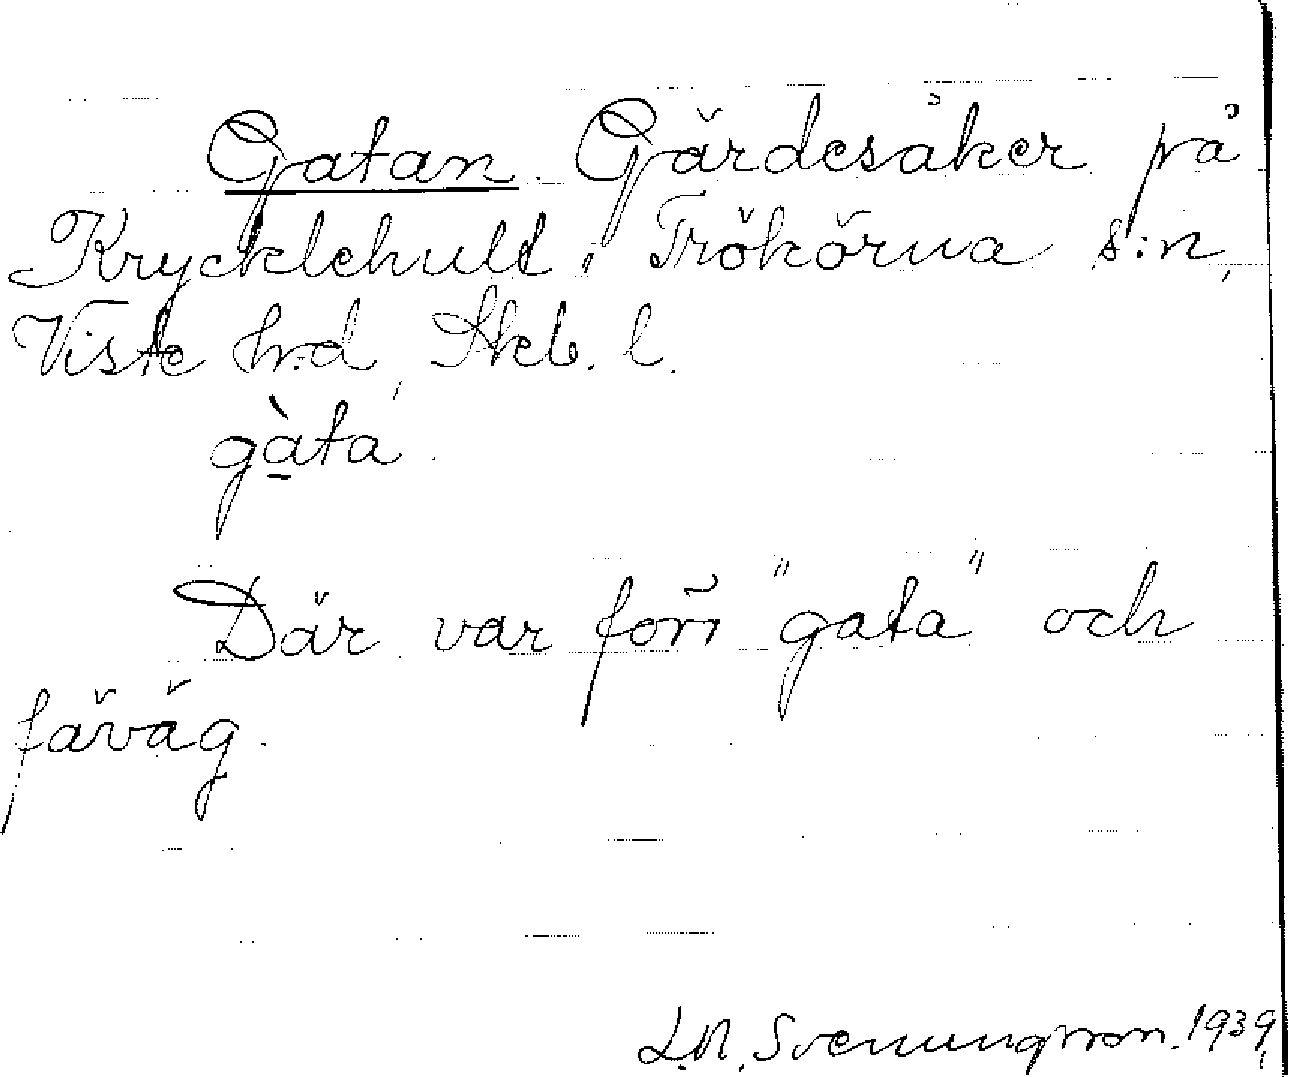 Gatan. Gärdesåker på
Krycklehult i Trökörna s:n,
Viste h:d, Skb. l.
gàta
Där var förr "gata" och
fäväg.
S. Svenungsson. 1939